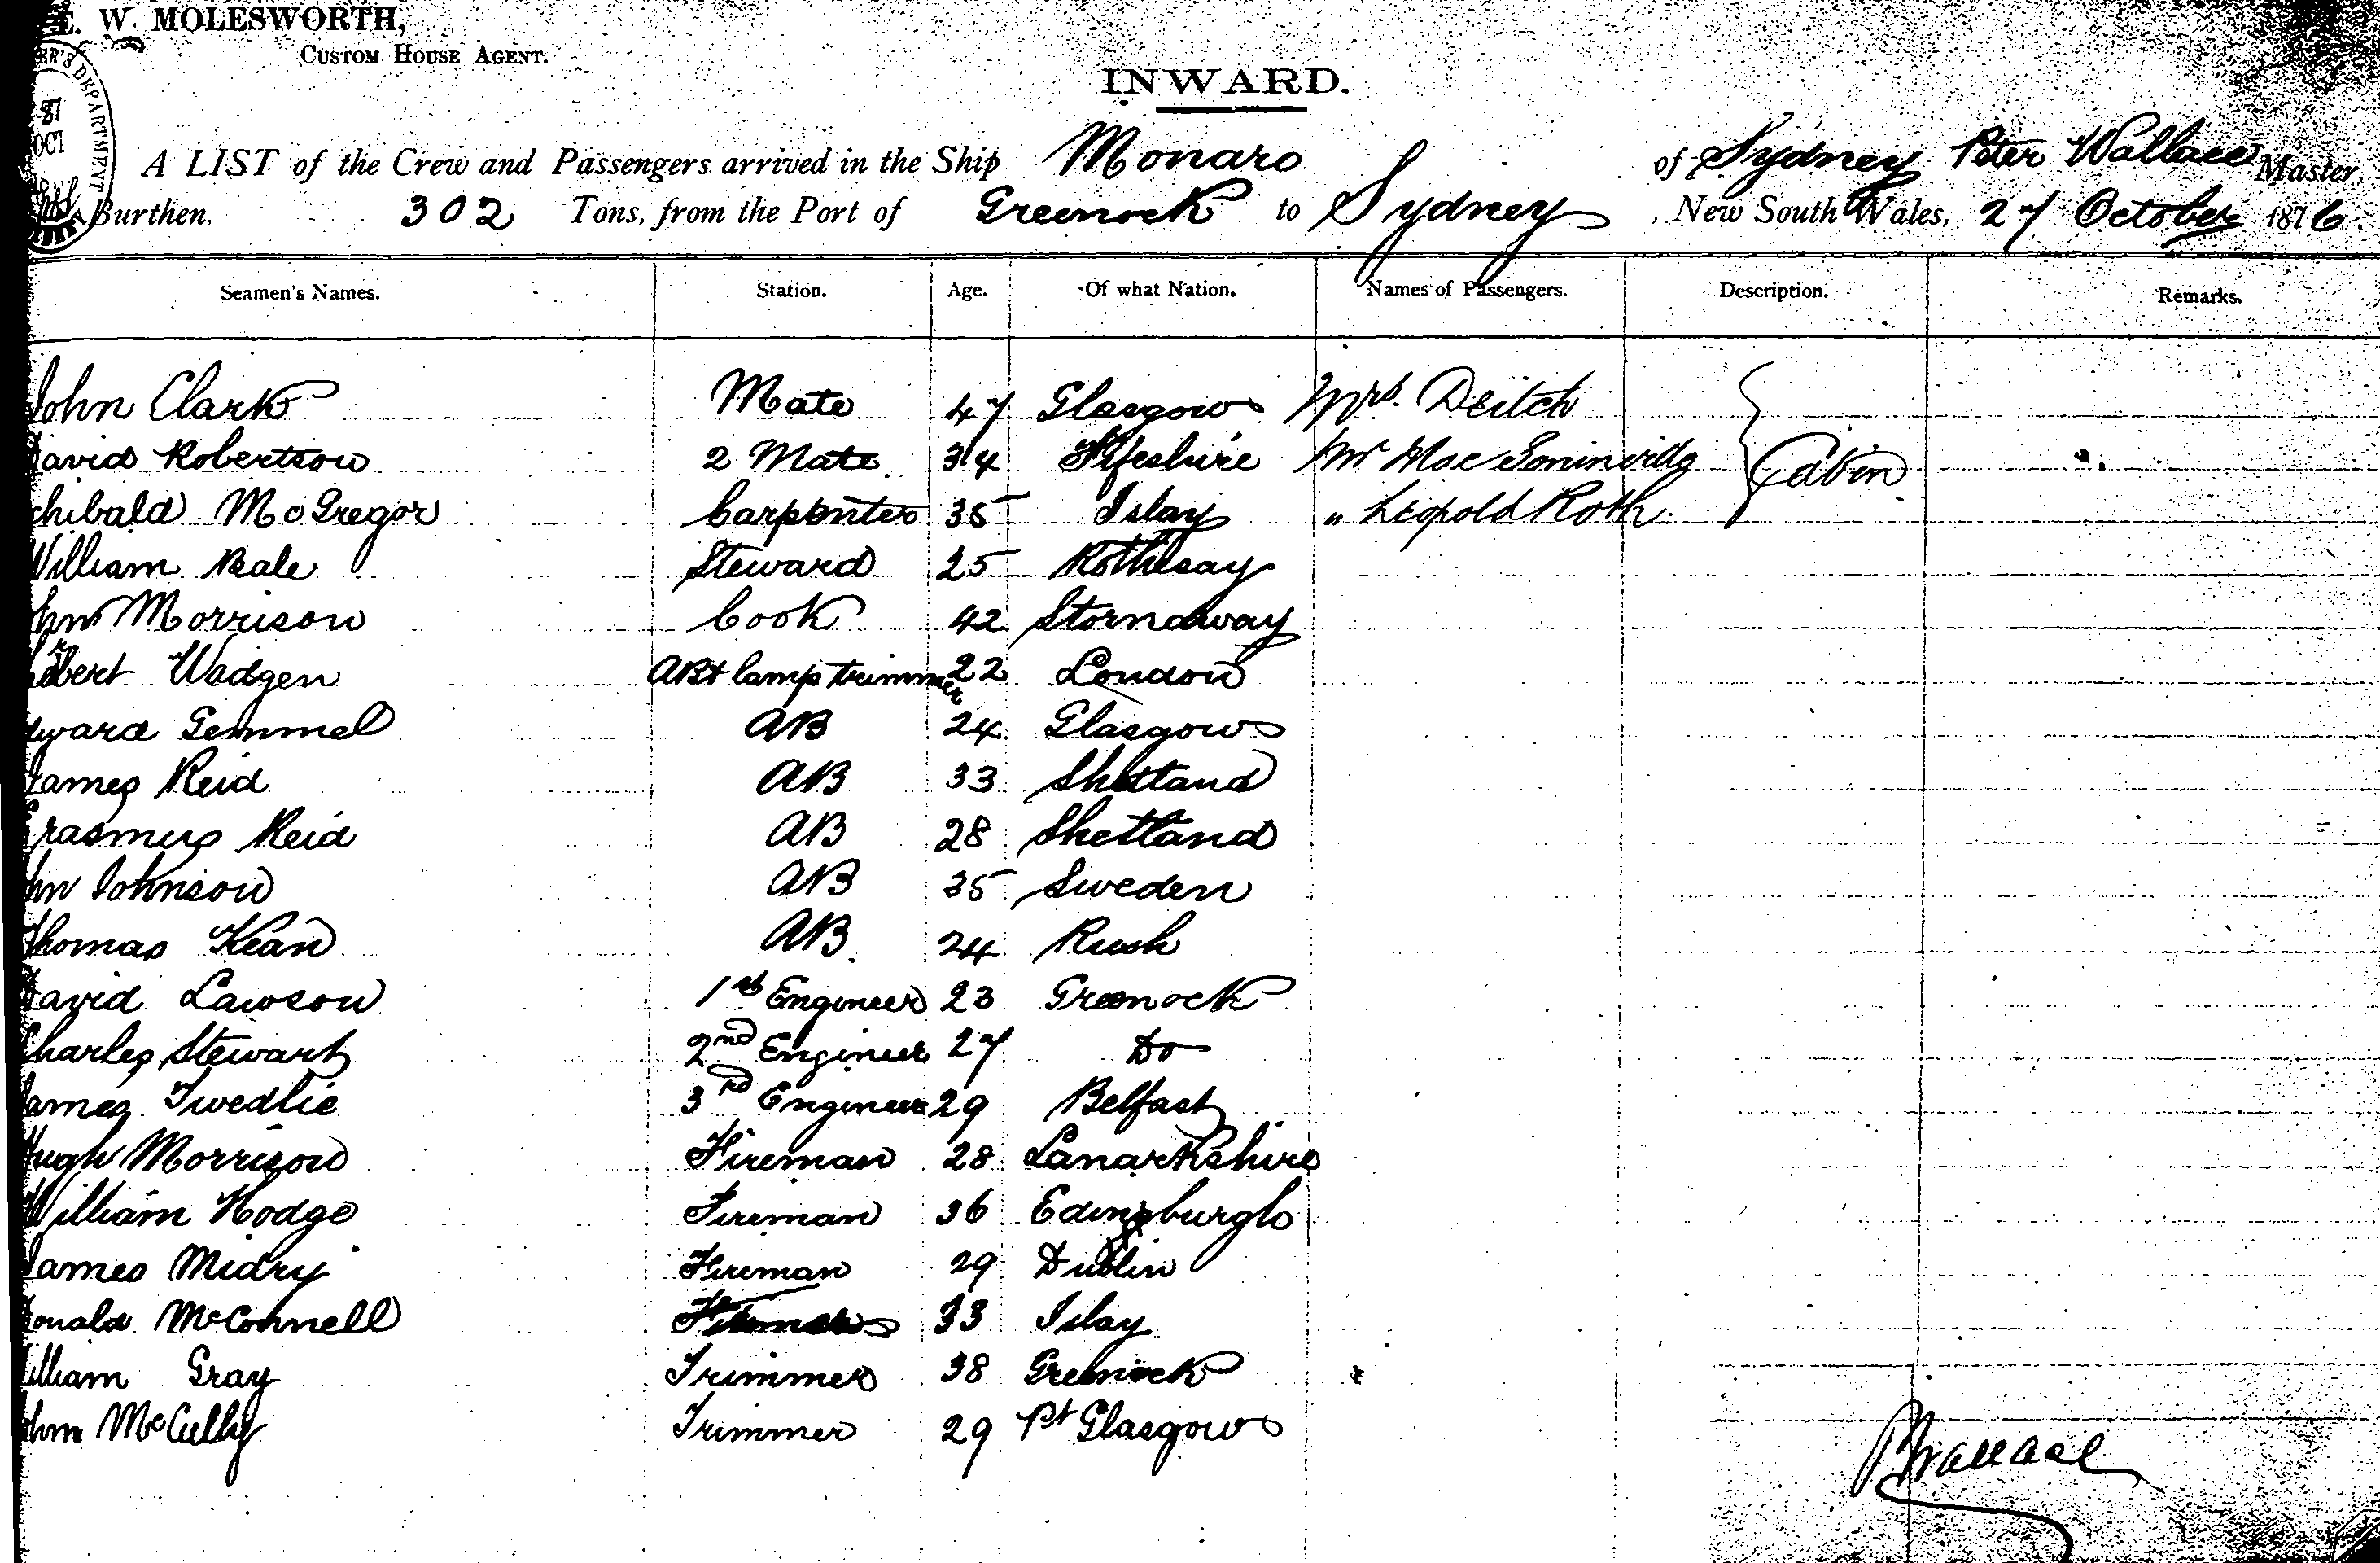 E. W. MOLESWORTH,
CUSTOM HOUSE AGENT.
INWARD.
DEPARTMENT
27
OCT
A LIST of the Crew and Passengers arrived in the Ship Monaro of Sydney Peter Wallace Master,
Burthen, 302 Tons, from the Port of Greenock to Sydney, New South Wales, 27 October 1876
Seamen's Names. Station. Age. Of what Nation. Names of Passengers. Description. Remarks.
John Clark Mate 47 Glasgow Mrs. Deitch
David Robertson 2 Mate 34 Fifeshire Mr Mac Cabin
chibald McGregor Carpenter 35 Islay " Leopold Roth
William Beale Steward 25 Rothesay
ohn Morrison Cook 42 Stornoway
Robert Wadgen AB & lamp trimmer 22 London
dward Gemmel AB 24 Glasgow
James Reid AB 33 Shetland
Erasmus Reid AB 28 Shetland
ohn Johnson AB 35 Sweden
Thomas Kean AB 24 Rush
David Lawson 1st Engineer 23 Greenock
Charles Stewart 2nd Engineer 27 Do
James Twedlie 3rd Engineer 29 Belfast
Hugh Morrison Fireman 28 Lanarkshire
William Hodge Fireman 36 Edinburgh
James Midry Fireman 29 Dublin
Donald McConnell 33 Islay
illiam Gray Trimmer 38 Greenock
ohn McCully Trimmer 29 Pt Glasgow
P Wallace